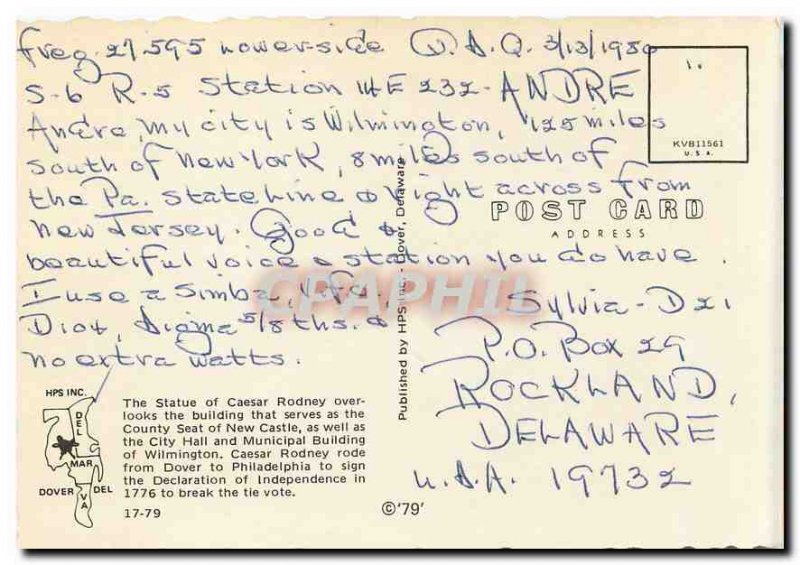 Freq. 27.595 Lower-side Q.S.Q. 3/13/1980
S-6 R-5 Station 14E 232-ANDRE
Andre, my city is Wilmington, 125 miles
south of New York, 8 miles south of
the Pa. state line & right across from
New Jersey. Good &
beautiful voice & station you do have.
I use a Simba,
Sigma 5/8ths. &
no extra watts.
Sylvia-Dzi
P.O. Box 29
ROCKLAND,
DELAWARE
U.S.A. 19732
KVB11561
U.S.A.
POST CARD
ADDRESS
Published by HPS Inc. - Dover, Delaware
CPAPHIL
HPS INC.
DEL
MAR
VA
DOVER DEL
The Statue of Caesar Rodney over-
looks the building that serves as the
County Seat of New Castle, as well as
the City Hall and Municipal Building
of Wilmington. Caesar Rodney rode
from Dover to Philadelphia to sign
the Declaration of Independence in
1776 to break the tie vote.
17-79
©'79'